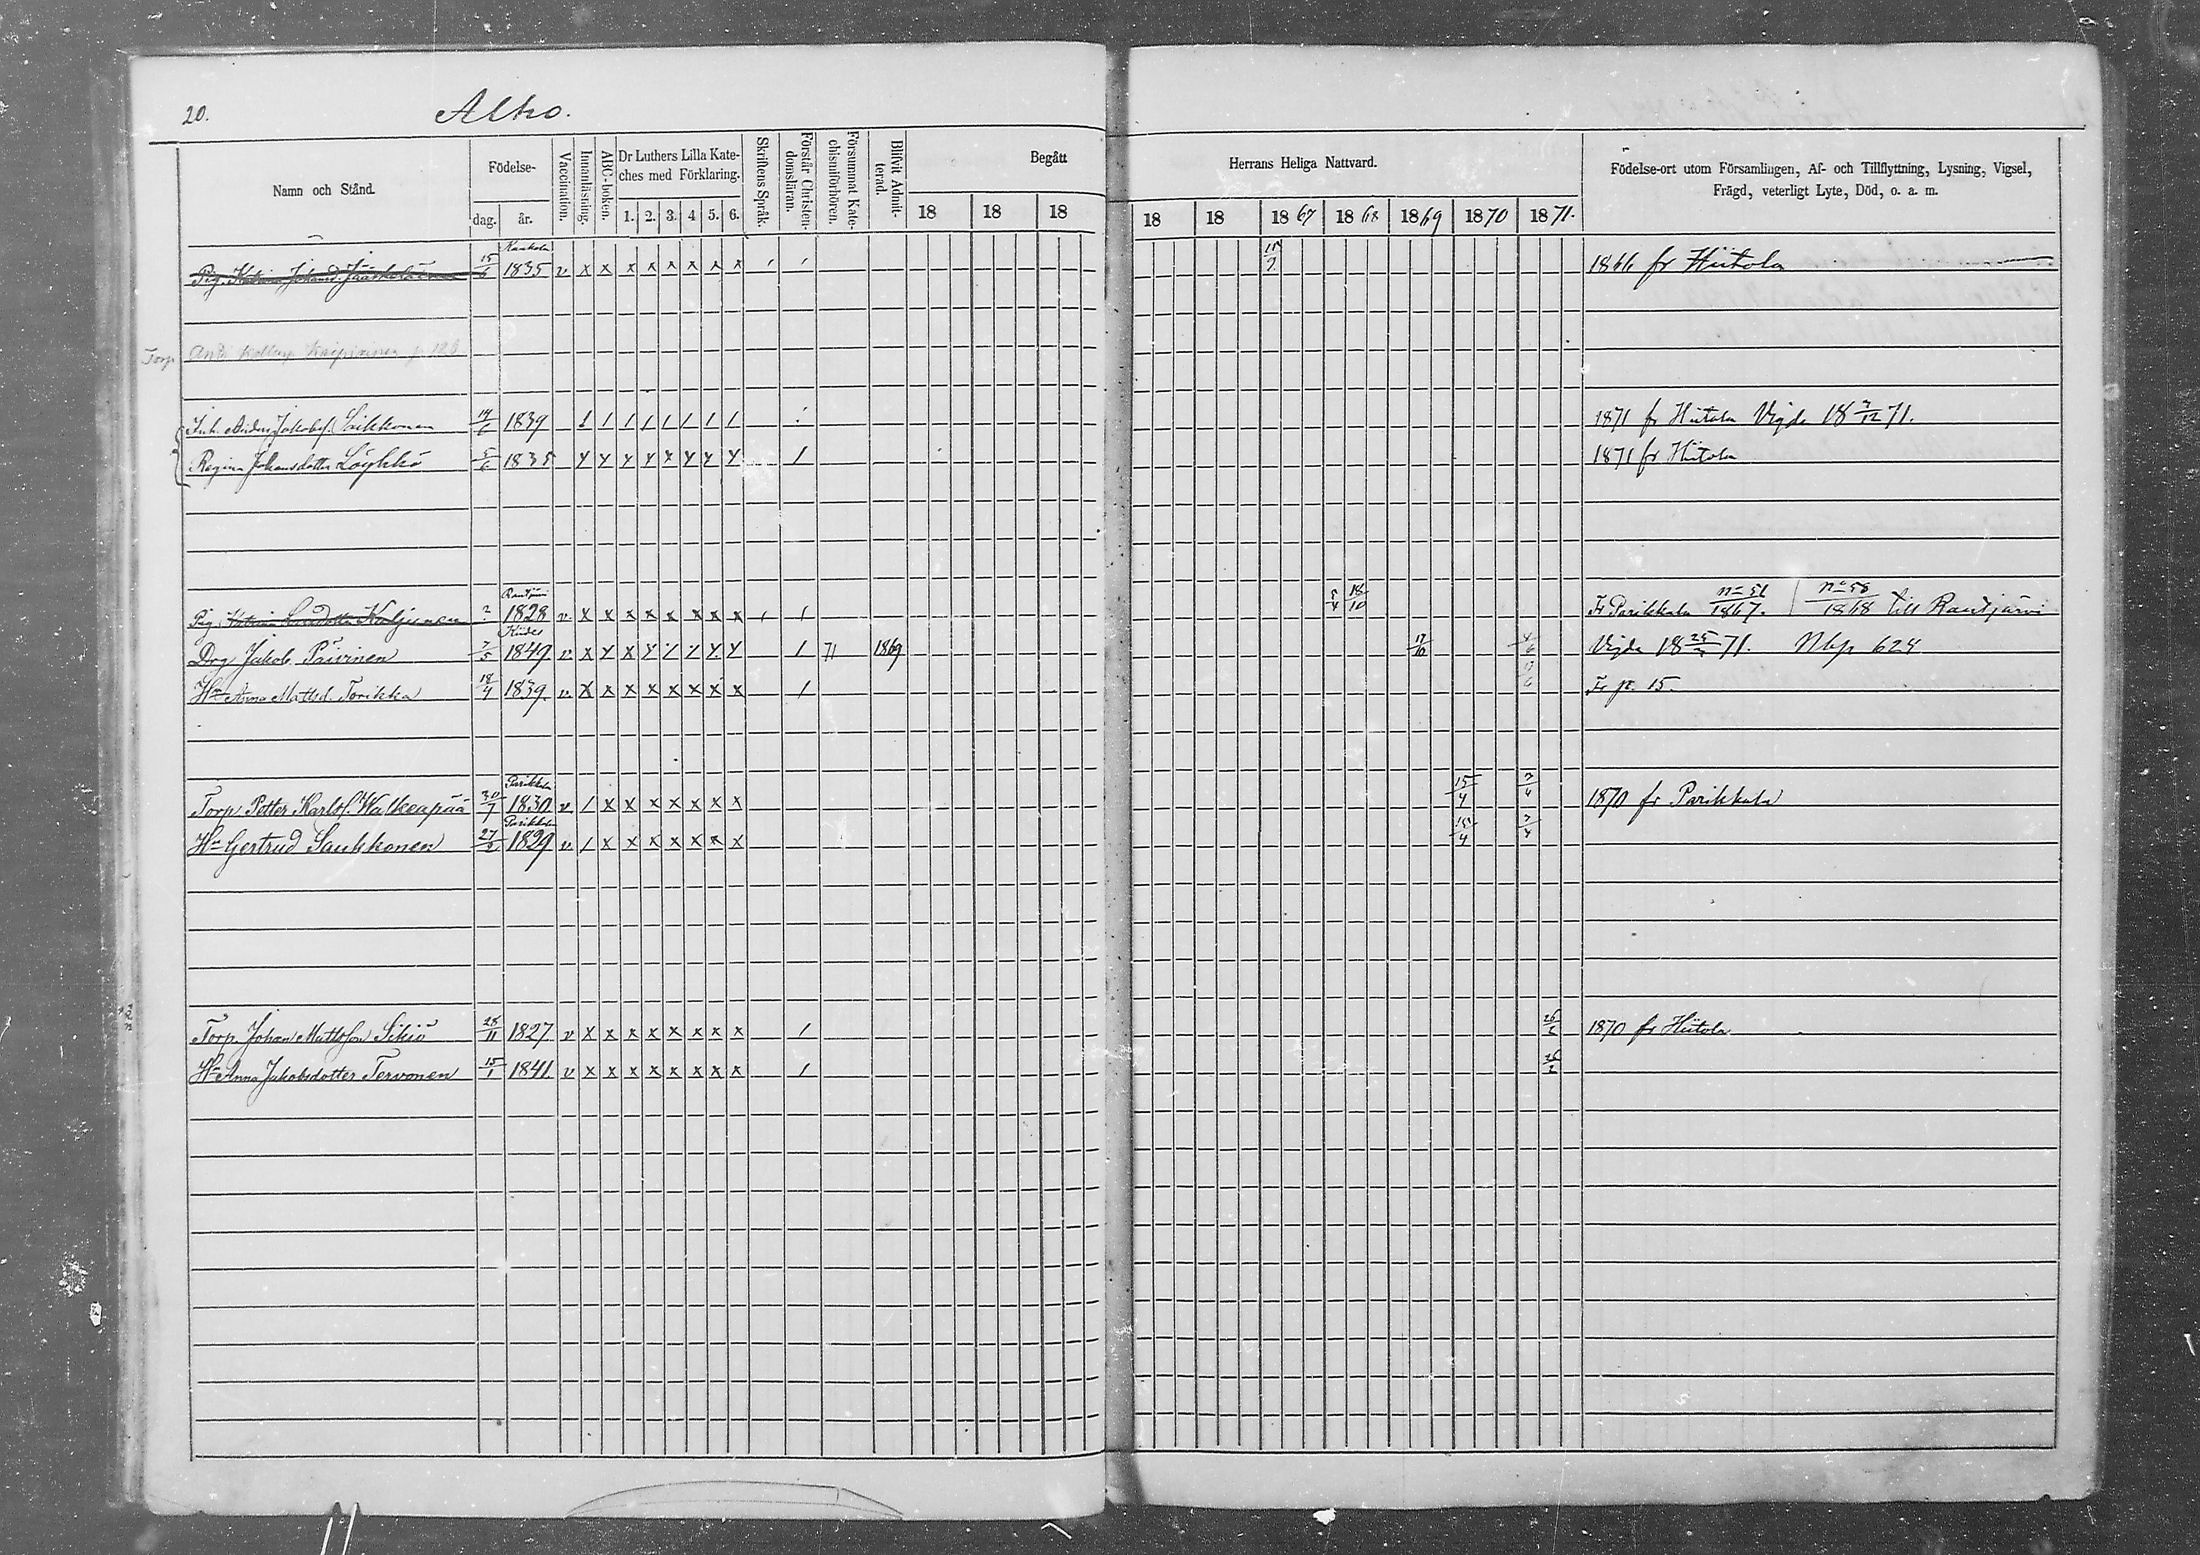 20. Alho.
Namn och Stånd.
Födelse-
dag. år.
Vaccination.
Innanläsning.
ABC-boken.
Dr Luthers Lilla Kate-
ches med Förklaring.
1. 2. 3. 4 5. 6.
Skriftens Språk.
Förstår Christen-
domsläran.
Försummat Kate-
chismiförhören.
Blifvit Admit-
terad.
Begått Herrans Heliga Nattvard.
18 18 18 18 18 1867 1868 1869 1870 1871.
Födelse-ort utom Församlingen, Af- och Tillflyttning, Lysning, Vigsel,
Frägd, veterligt Lyte, Död, o. a. m.
Pig. Katrina 15/6 1835 v x x x x x x x x 1866 fr Hiitola
Torp
Inh. Anders Jakobss. 19/6 1839 1 1 1 1 1 1 1 1 1871 fr Hiitola Vigda 18 3/12 71.
Regina Johansdotter Löykkö 5/6 1835 1871 fr Hiitola
Pig. Katrina Kuljunen ? 1828 v x x x x x x x x 5/4 18/10 Fr Parikkala No 51/1867. No 58/1868 till Rautjärvi
Drg Jakob Päivinen 7/5 1849 v 1 71 1869 17/10 4/6 Vigda 71. Nbp 624
Hu Anna Mattsd. Torikka 18/4 1839. v x x x x x x x x 1 Fr p. 15.
Parikkala
Torp. Petter Karlss. Walkeapää 30/7 1830 v 1 x x x x x x x 15/4 7/4 1870 fr Parikkala
Parikkala
Hu Gertrud Saukkonen 27/2 1829 v 1 x x x x x x x 15/4 7/4
Torp. Johan Mattsson Sikiö 28/11 1827 v x x x x x x x x 1 26/2 1870 fr Hiitola
Hu Anna Jakobsdotter Tervonen 15/1 1841. v x x x x x x x x 1 26/2